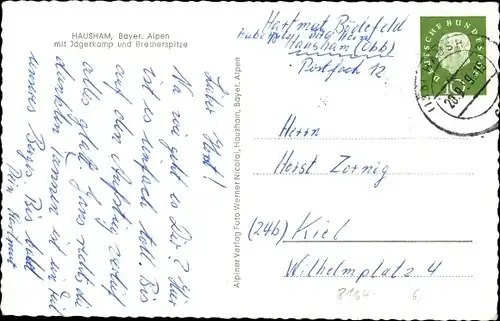 HAUSHAM, Bayer. Alpen
mit Jägerkamp und Brecherspitze
Lieber Horst!
Na wie geht es Dir? Hier
ist es einfach toll. Bis
auf den Aufstieg verlief
alles glatt. Ganz rechts die
dunklen Tannen ist ein Teil
unseres Bergs. Bis bald
Dein Hartmut
Alpiner Verlag Foto Werner Nicolai, Hausham, Bayer. Alpen
Hartmut Bödefeld
Hausham (Obb)
Postfach 12
DEUTSCHE BUNDESPOST
28.9.59-19
Herrn
Horst Zornig
(24b) Kiel
Wilhelmplatz 4